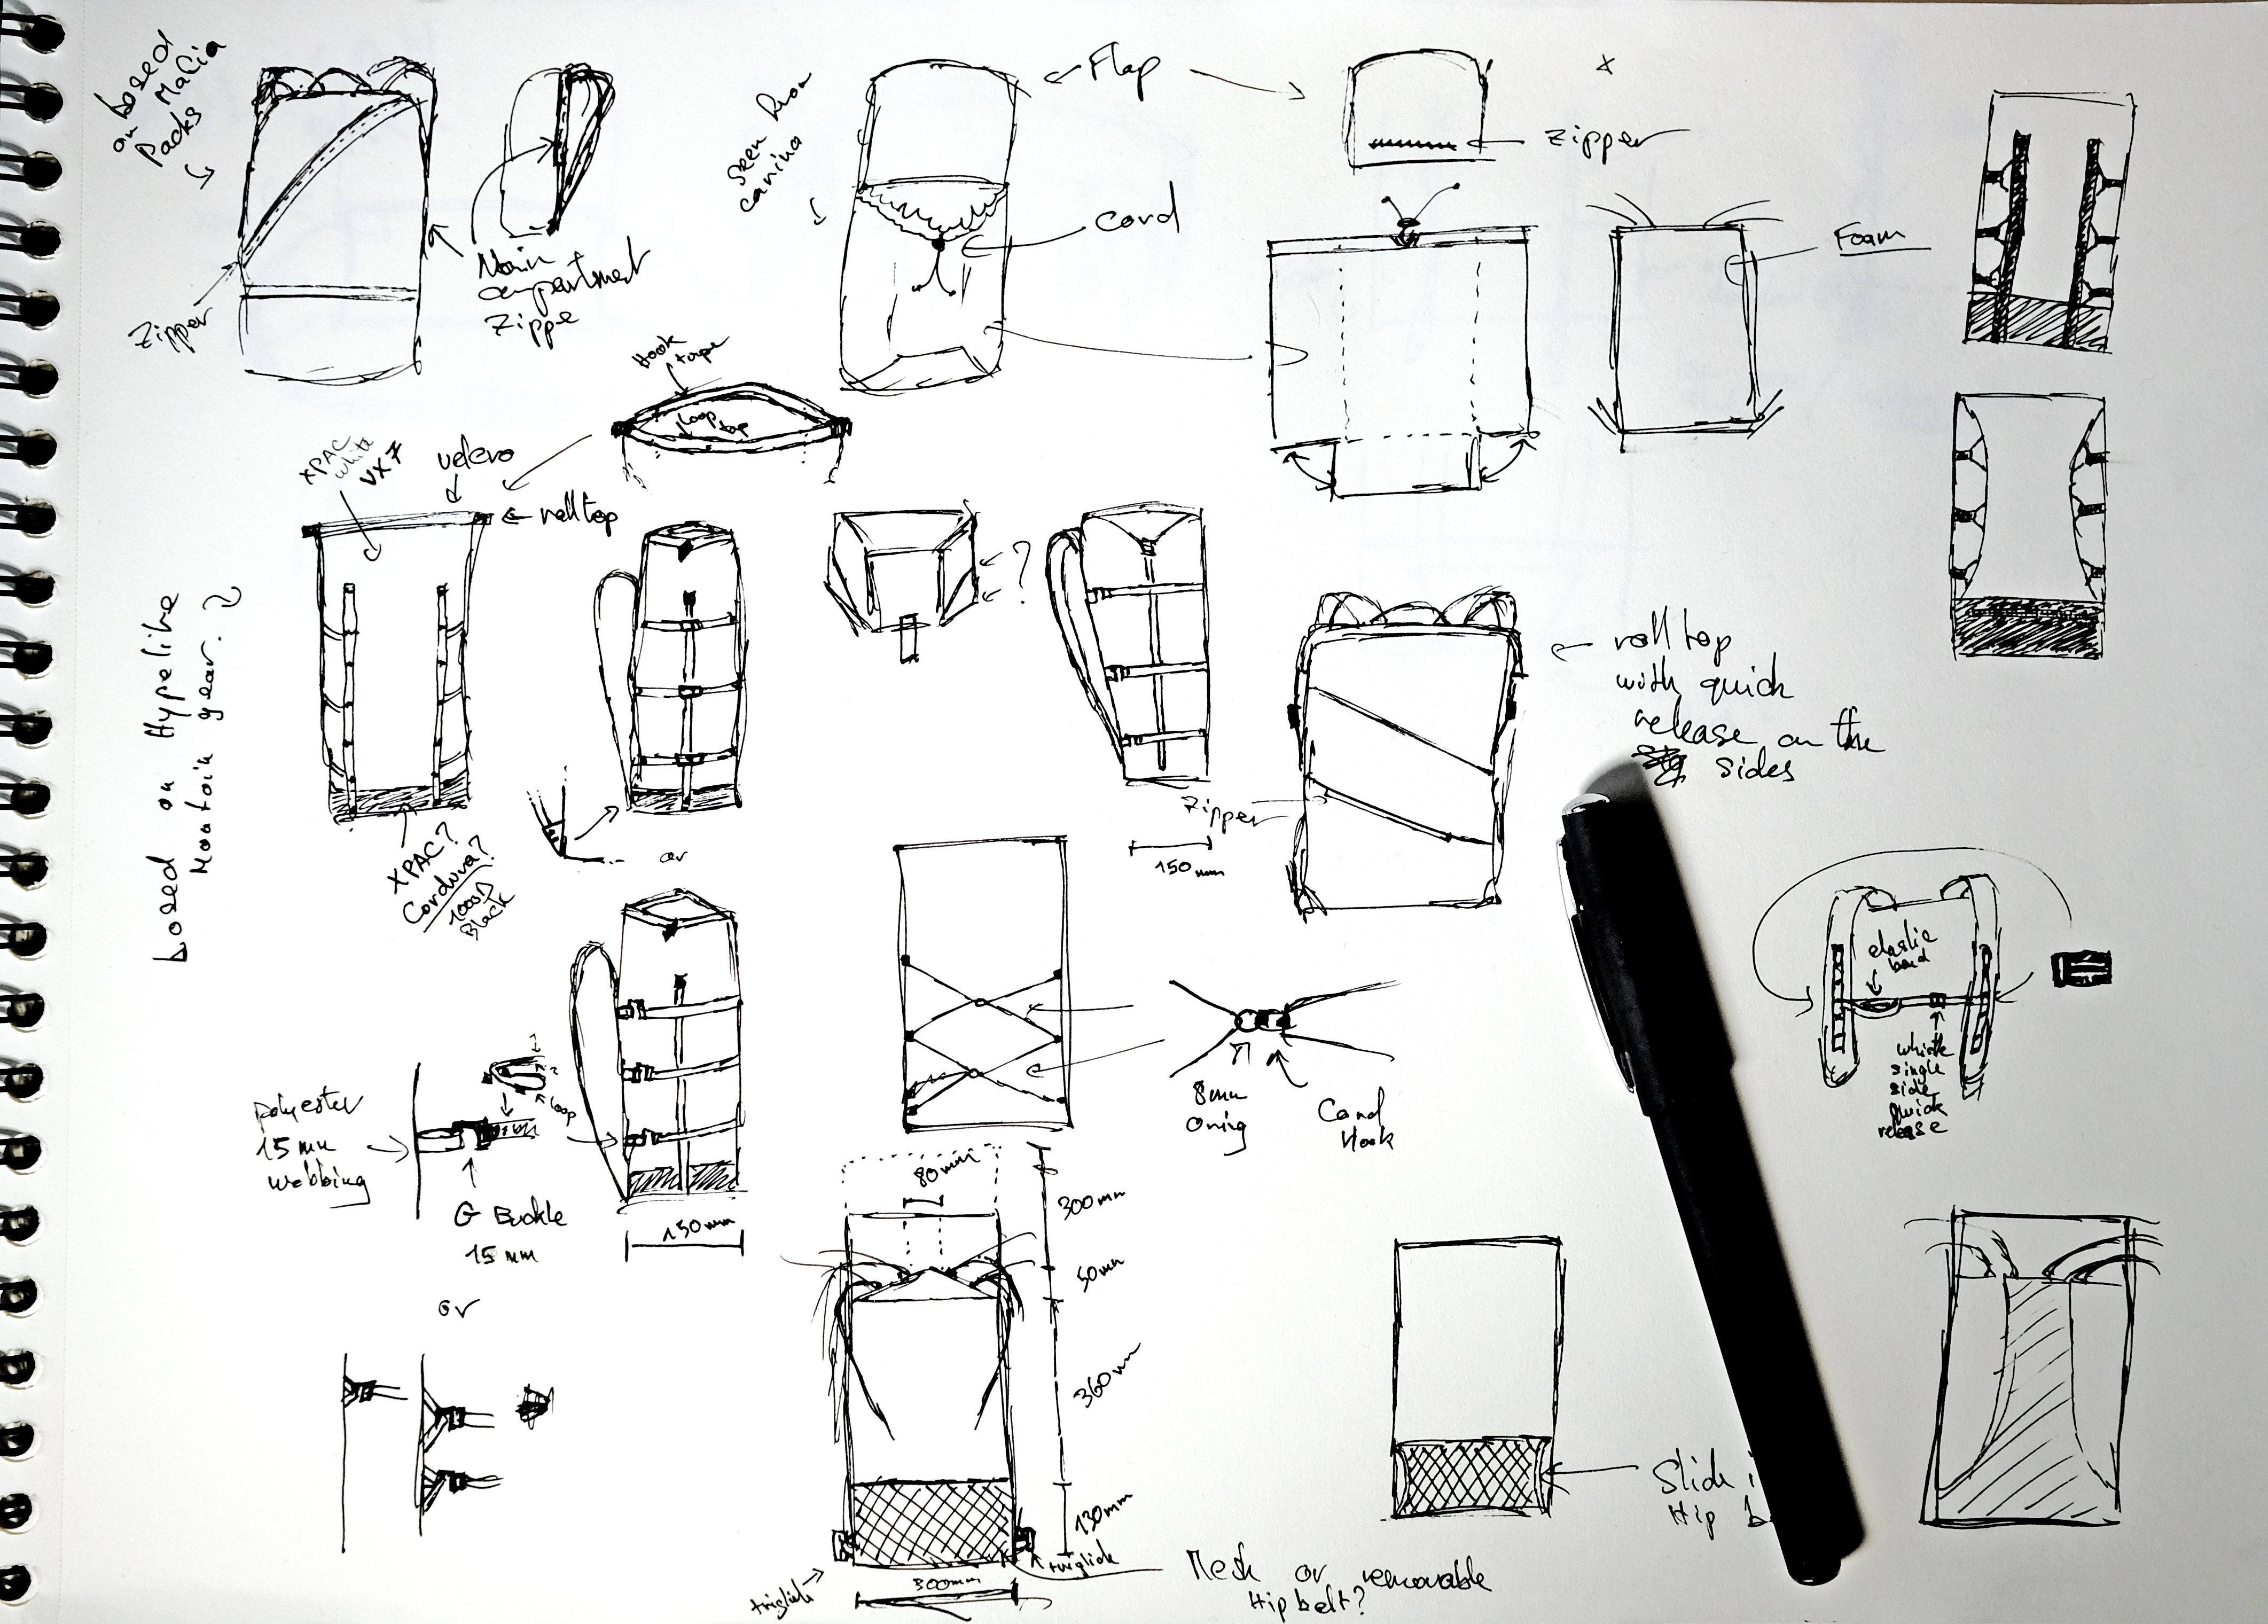 based
on Malia
Packs
Zipper
Main
compartment
Zippe
seen from
canina
Flap
Zipper
x
cord
Foam
Hook
tape
Loop
tap
XPAC
white
VX7
velcro
roll top
based on Hypelike
Moutain gear.
?
XPAC?
Cordura?
1000D
Black
or
150mm
Zipper
roll top
with quick
release on the
sides
elastic
band
whistle
single
side
quick
release
polyester
15 mm
webbing
loop
G Buckle
15 mm
150mm
or
8mm
Oring
Cord
Hook
80mm
300mm
50mm
360mm
130mm
300mm
triglide
triglide
Mesh or removable
Hip belt?
Slide i
Hip b